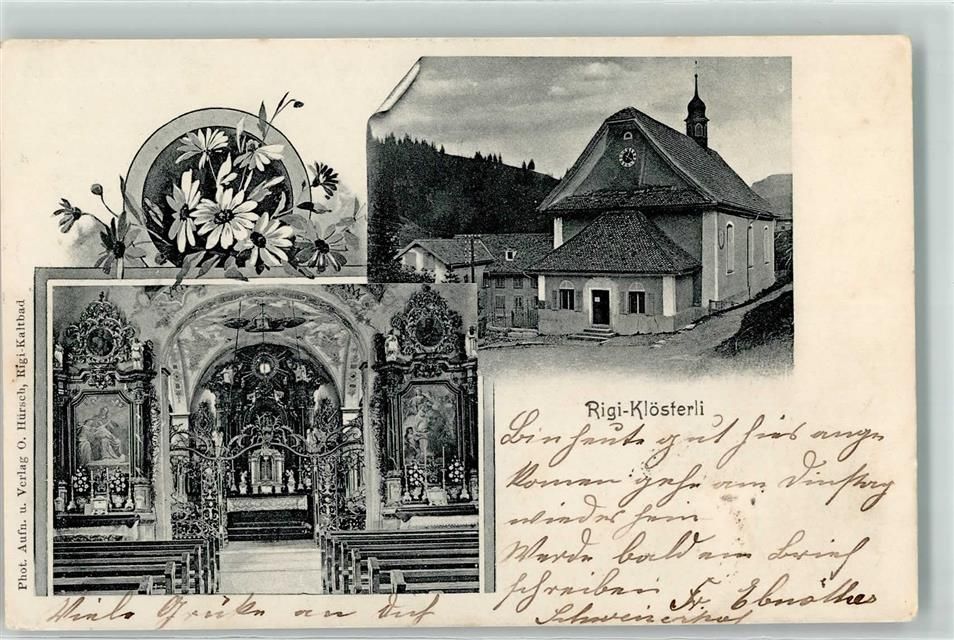 Phot. Aufn. u. Verlag O. Hürsch, Rigi-Kaltbad
Rigi-Klösterli
Bin heute gut hier ange
komen gehe am Dinstag
wieder heim
Werde bald ein Brief
schreiben Fr. Ebnöther
Schweizerhof
Viele Grüße an dich